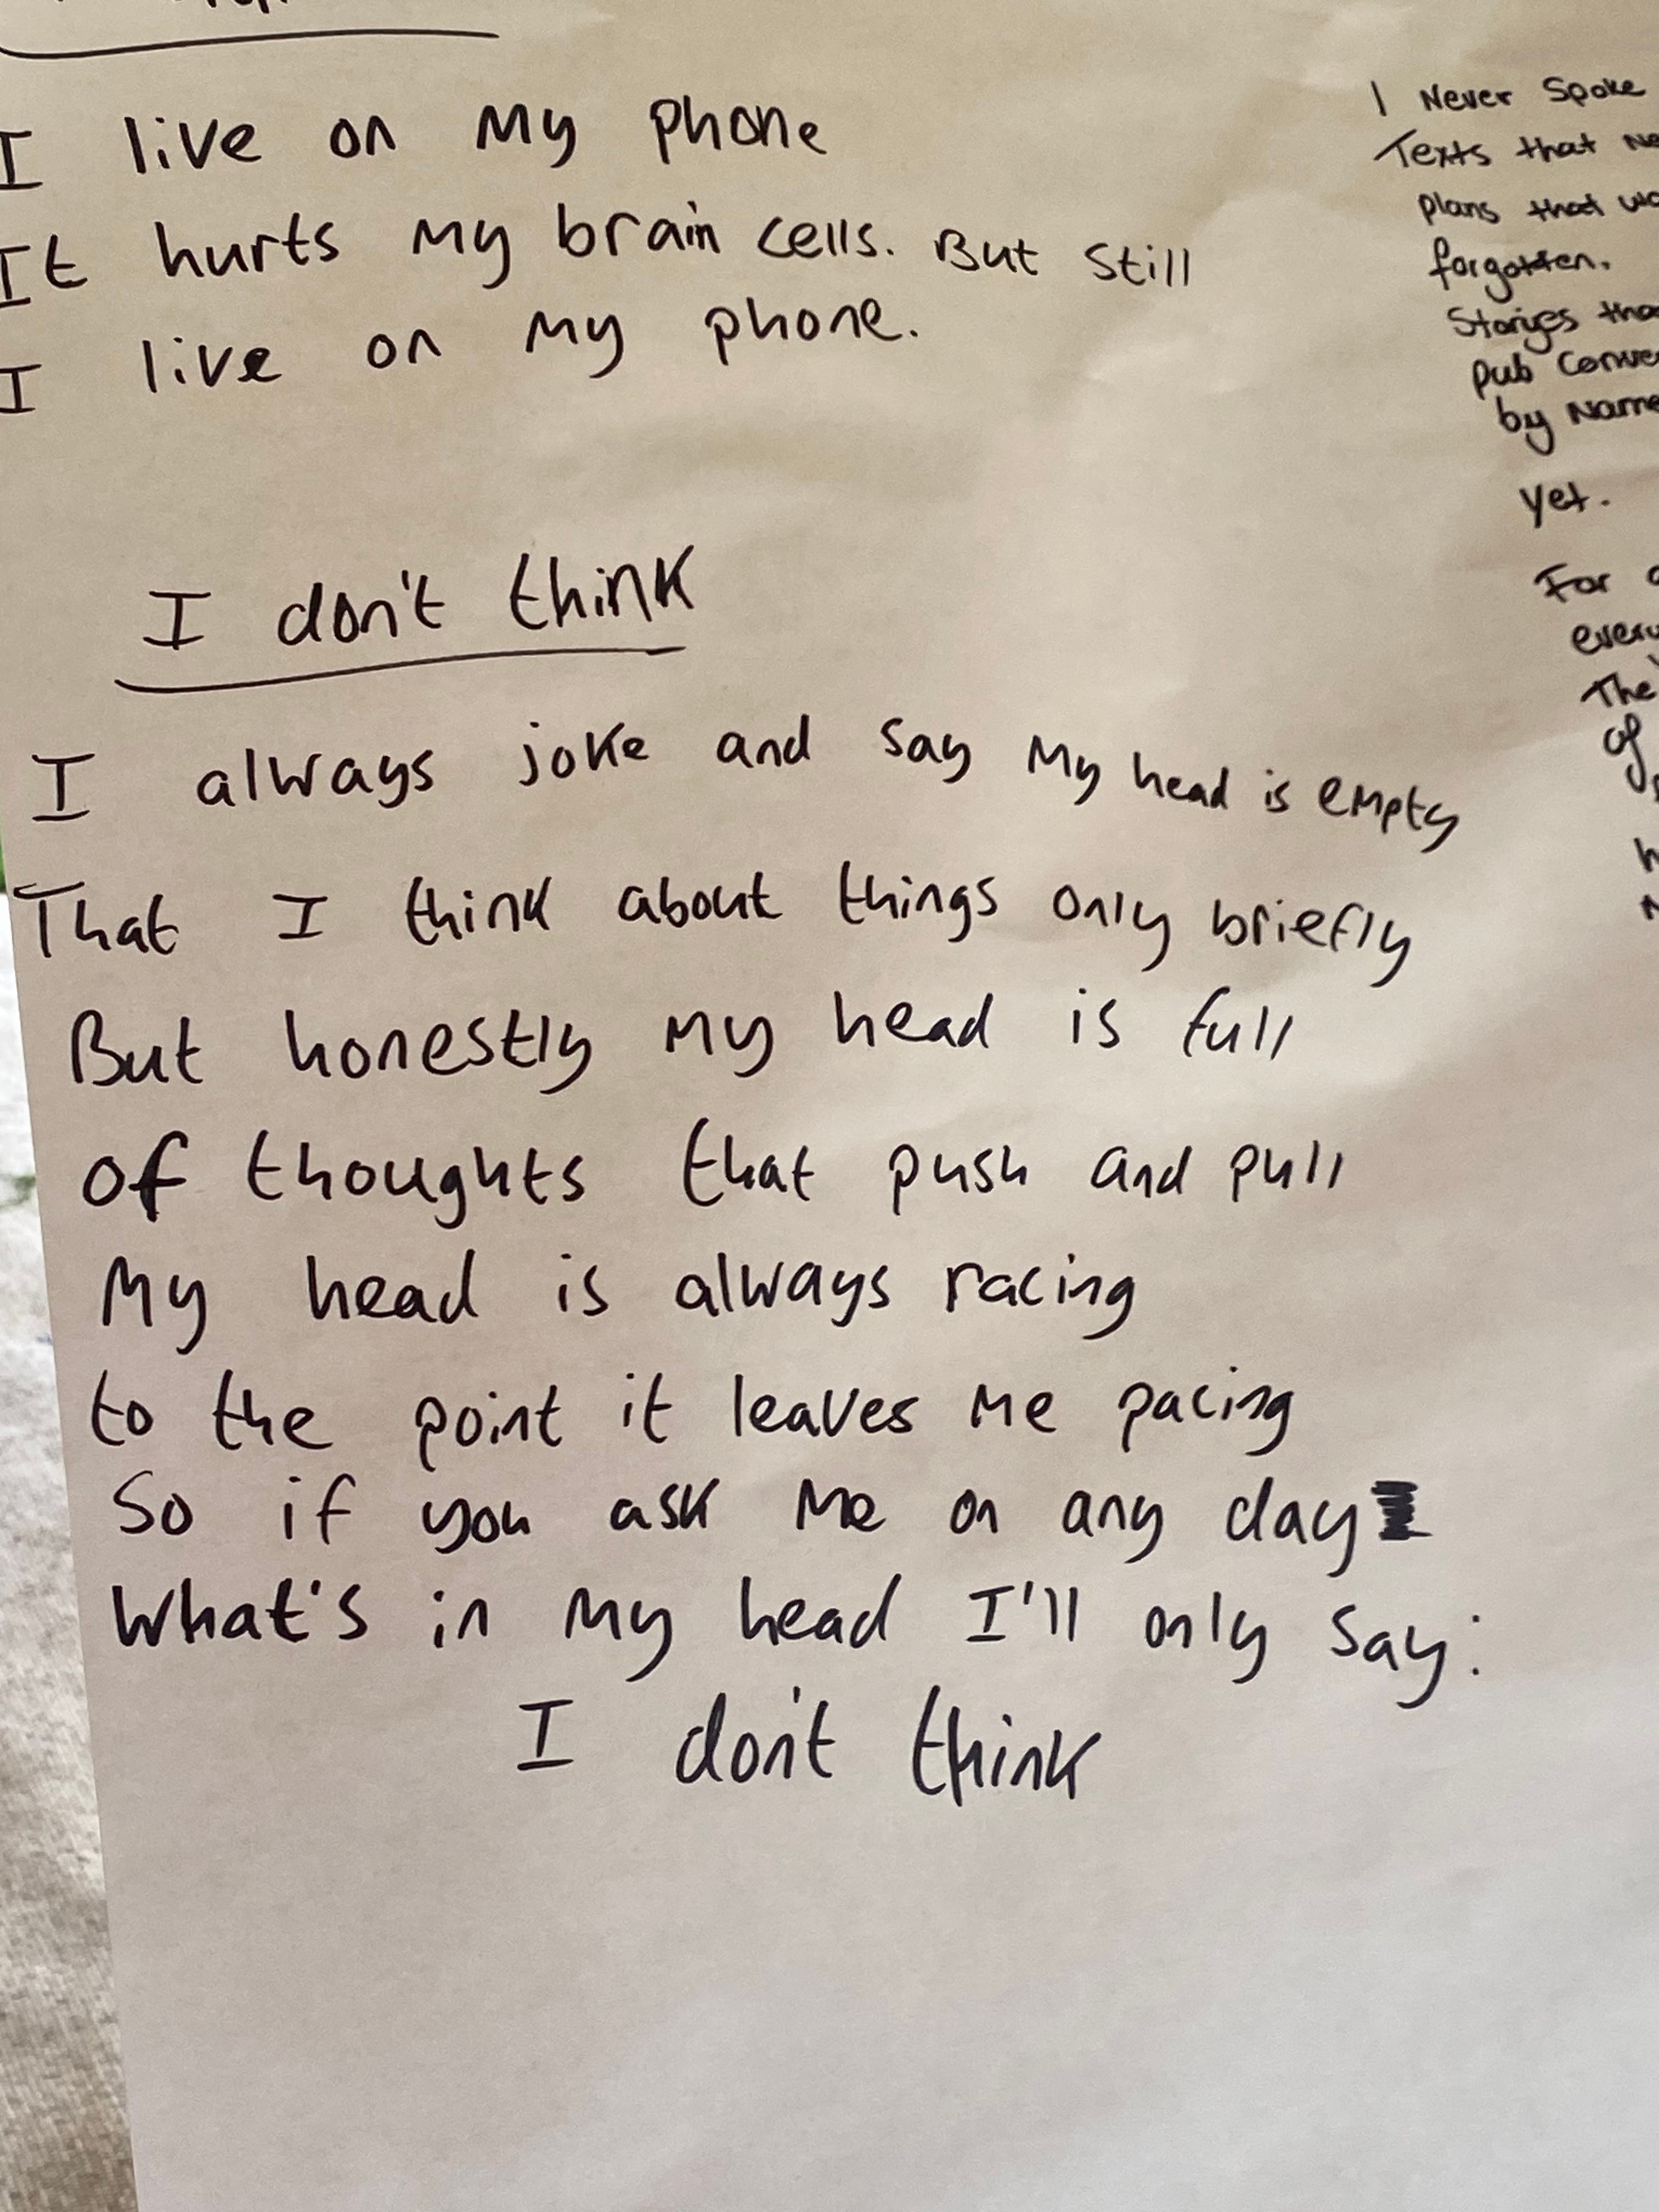 I live on my phone
It hurts my brain cells. But still
I live on my phone.
I don't think
I always joke and say my head is empty
That I think about things only briefly
But honestly my head is full
of thoughts that push and pull
My head is always racing
to the point it leaves me pacing
So if you ask me on any day
What's in my head I'll only say:
I don't think
I Never Spoke
Texts that
plans that
forgotten.
Stories
pub
by
Yet.
For
The
of